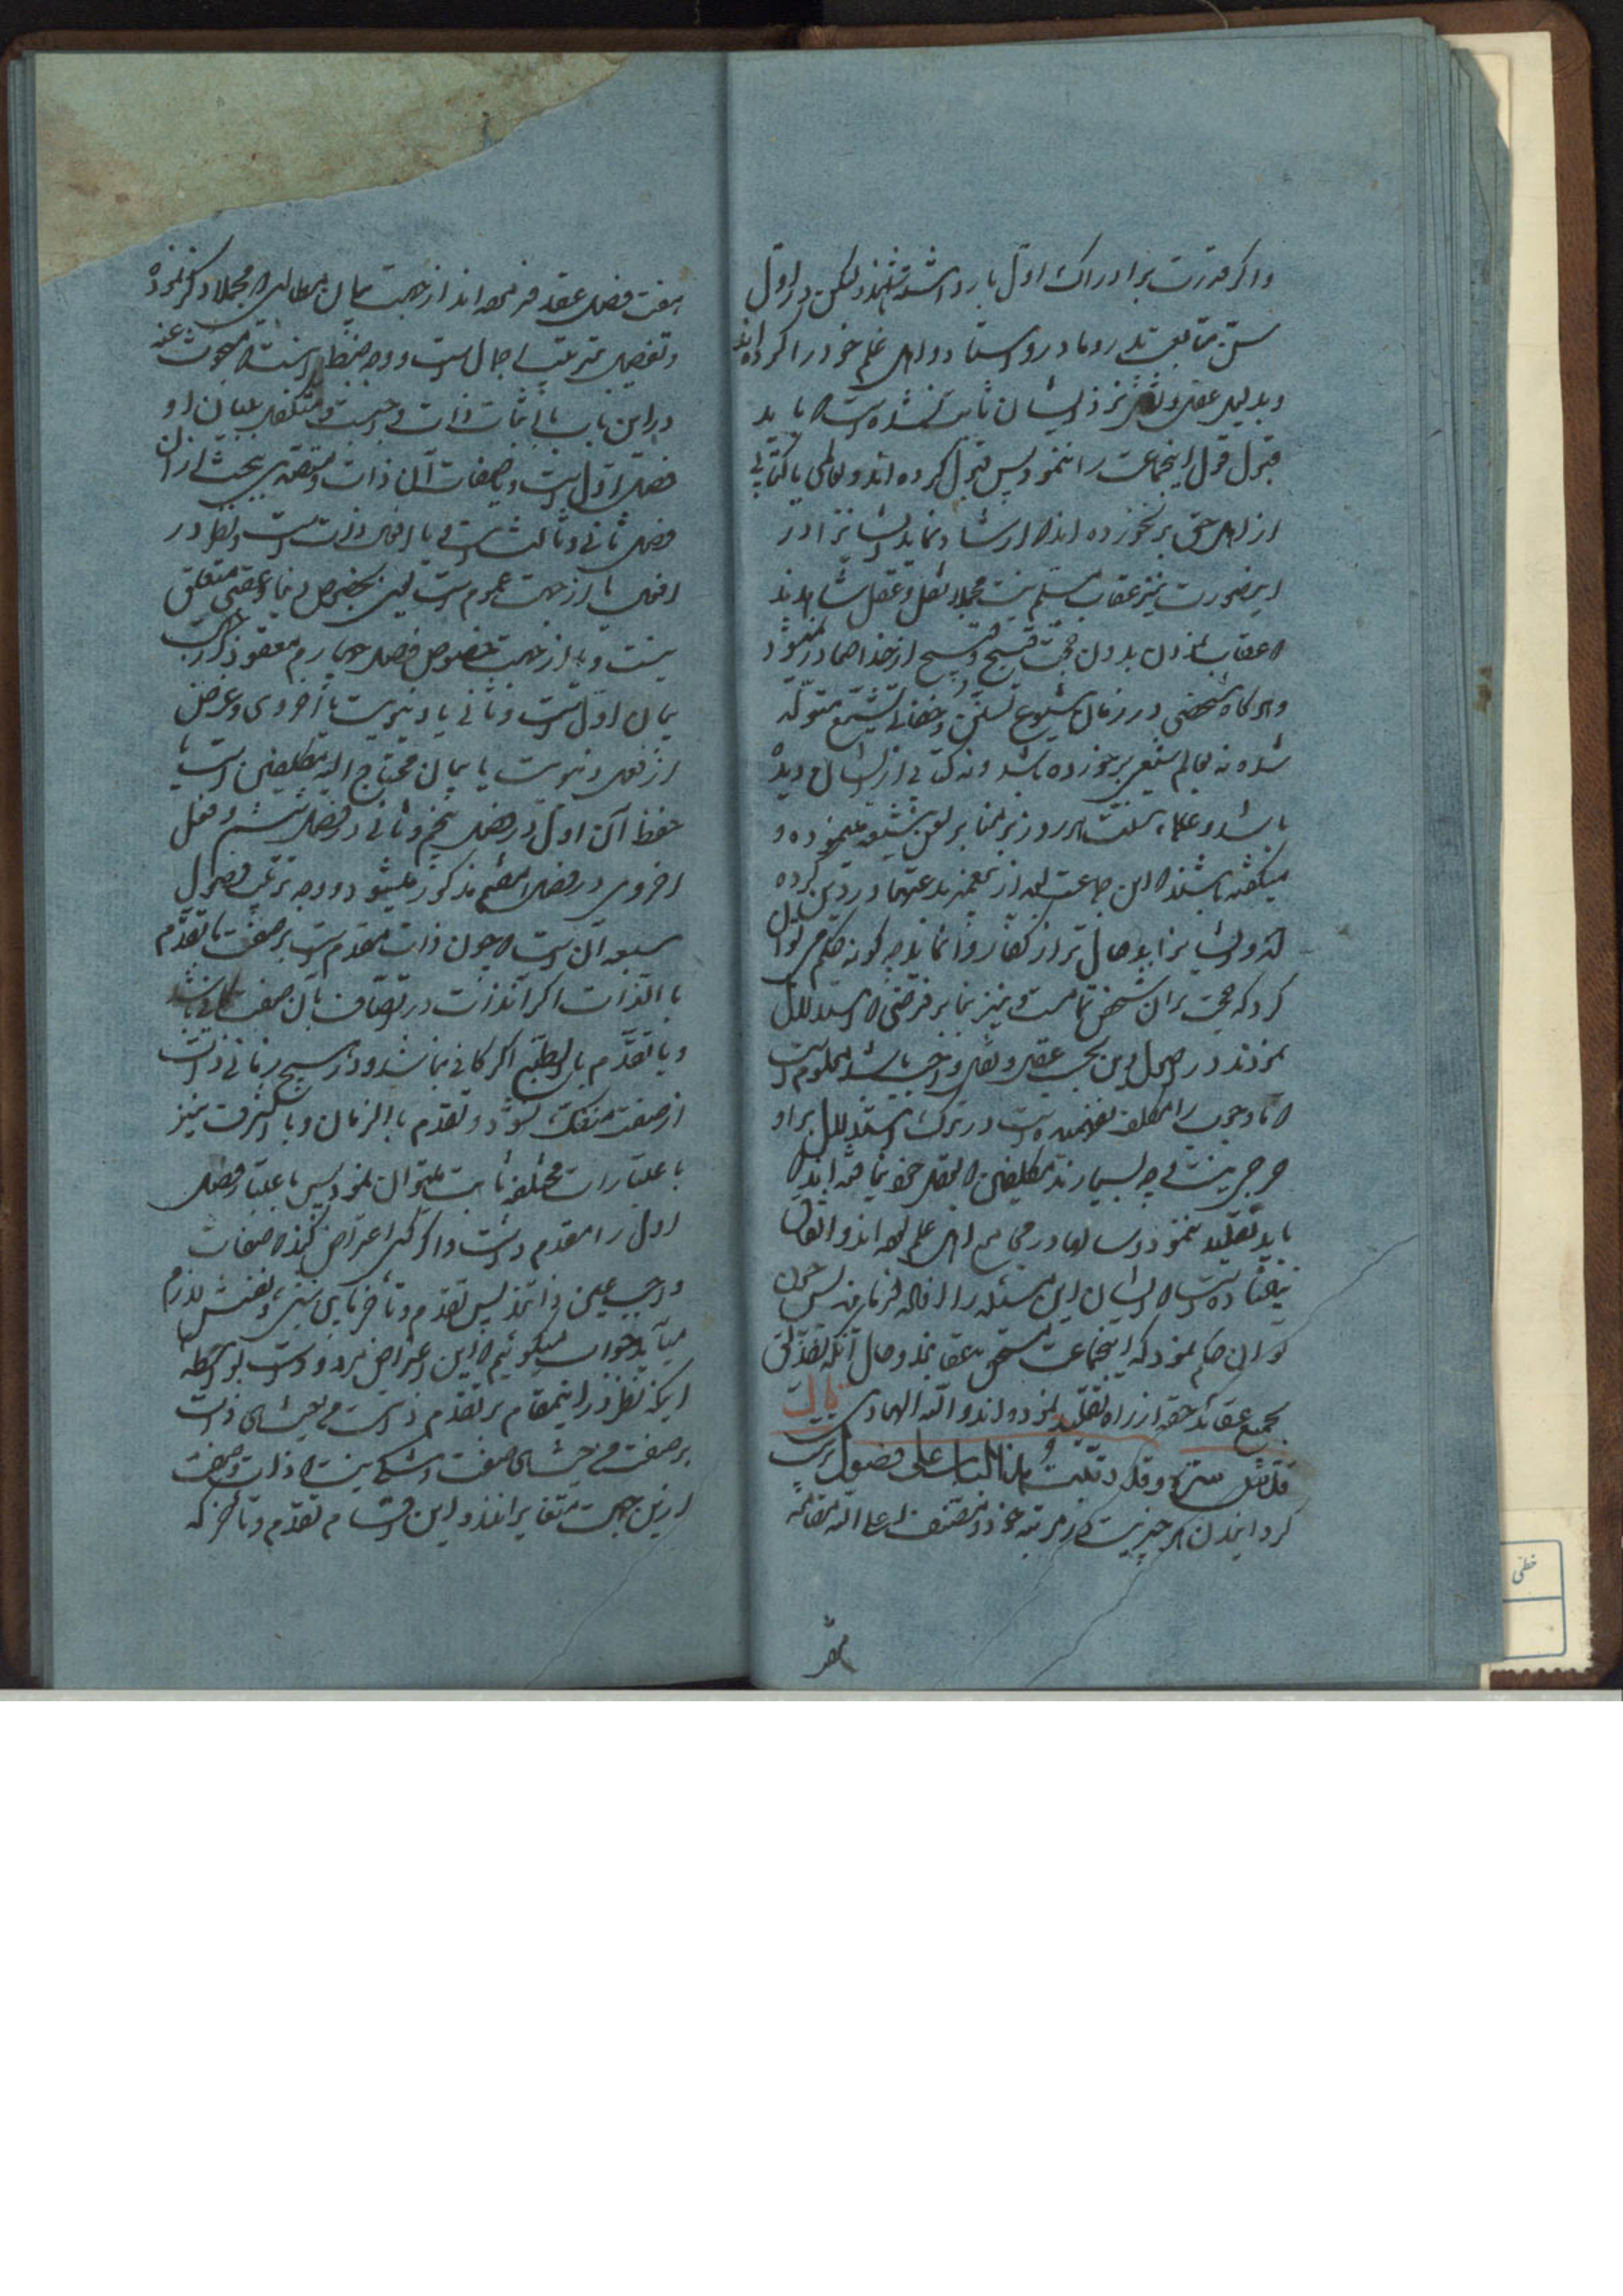 واکر قدرت بر ادراک اول با رد داشته شهند لیکن در اول
سن متابعت پدر و مادر و استاد و اهل علم خود را کرده اند
و بدلیل عقل و نقل نزد ایشان ثابت نشده است که باید
قبول قول اینجماعت را نمود پس قبول کرده اند و بعالمی یا کتابی
از اهل حق بر نخورده اند که ارشاد نماید ایشانرا در
اینصورت نیز عقاب مسلم نیست مجملا نقل و عقل شاهدند
که عقاب بدون حجت قبیح و قبیح از خدا صادر نمیشود
و هر کاه شخصی در زمان شیوع تسنن و خفای تشیع متولد
شده نه بعالم شیعی بر خورده باشد و نه کتابی از ایشان دیده
باشد و علماء سنت هر روز بر منابر لعن شیعه مینموده و
میکفته باشند که این جماعت بدعتها در دین کرده
اند و ایشانرا بد حال تر از کفار وا نماید چه کونه حکم میتوان
کرد که حجت بر ان شخص تمامست و نیز بنا بر فرضی که استدلال
نمودند در اصول دین بحسب عقل و نقل واجب باشد معلومست
که تا وجوب را مکلف نفهمیده است در ترک استدلال بر او
حرجی نیست چه بسیارند مکلفین که بعقل خود نیافته اند که
باید تقلید ننمود و سالها در مجامع اهل علم بوده اند و اتفاق
نیفتاده است که ایشان این مسئله را افاده فرمایند پس چون
توان حکم نمود که اینجماعت مستحق عقابند و حال آنکه تصدیق
بجمیع عقائد حقه از راه تقلید نموده اند و الله الهادی قال
قدس سره و قد رتبت هذا الباب علی فصول ترتیب
کردانیدن هر چیزیست در مرتبه خود و مصنف اعلی الله مقامه
هفت
هفت فصل عقد فرموده اند از جهت بیان مطالبی که مجملا ذکر نموده
و تفصیل مترتب اجمال است و وجه ضبط انست که مبحوث عنه
در این باب یا اثبات ذات واجب است و متکفل بیان او
فصل اول است و یا صفات آن ذات و متصدی بحث از ان
فصل ثانی و ثالث است و یا افعال ذات است و نظر در
افعال یا از جهت عموم است یعنی بخصوص دنیا و عقبی متعلق
نیست و یا از جهت خصوص فصل چهارم معقود از برای
بیان اول است و ثانی یا دنیویست یا اخروی و غرض
از فعل دنیویست یا بیان محتاج الیه مکلفین است یا
حفظ آن اول در فصل پنجم و ثانی در فصل ششم و فعل
اخروی در فصل هفتم مذکور میشود و وجه ترتیب فصول
سبعه آن است که چون ذات مقدم است بر صفت یا تقدم
بالذات اکر انذات در اتصاف بان صفت کافی باشد
و یا تقدم بالطبع اکر کافی نباشد و در هیچ زمانی ذات
از صفت منفک نشود و تقدم بالزمان و بالشرف نیز
باعتبارات مختلفه ثابت میتوان نمود پس باعتبار فصل
اول را مقدم داشت و اکر کسی اعتراض کند که صفات
واجب عین ذاتند پس تقدم و تأخر ما بین شیء و نفسش لازم
میآید جواب میکوئیم که این اعتراض مردود است بواسطه
اینکه نظر در اینمقام بر تقدم ذات من حیث هی ذات
بر صفت من حیث هی صفت است و شکی نیست که ذات و صفت
از این جهت متغایرانند و این اقسام تقدم و تأخر که
خطّی